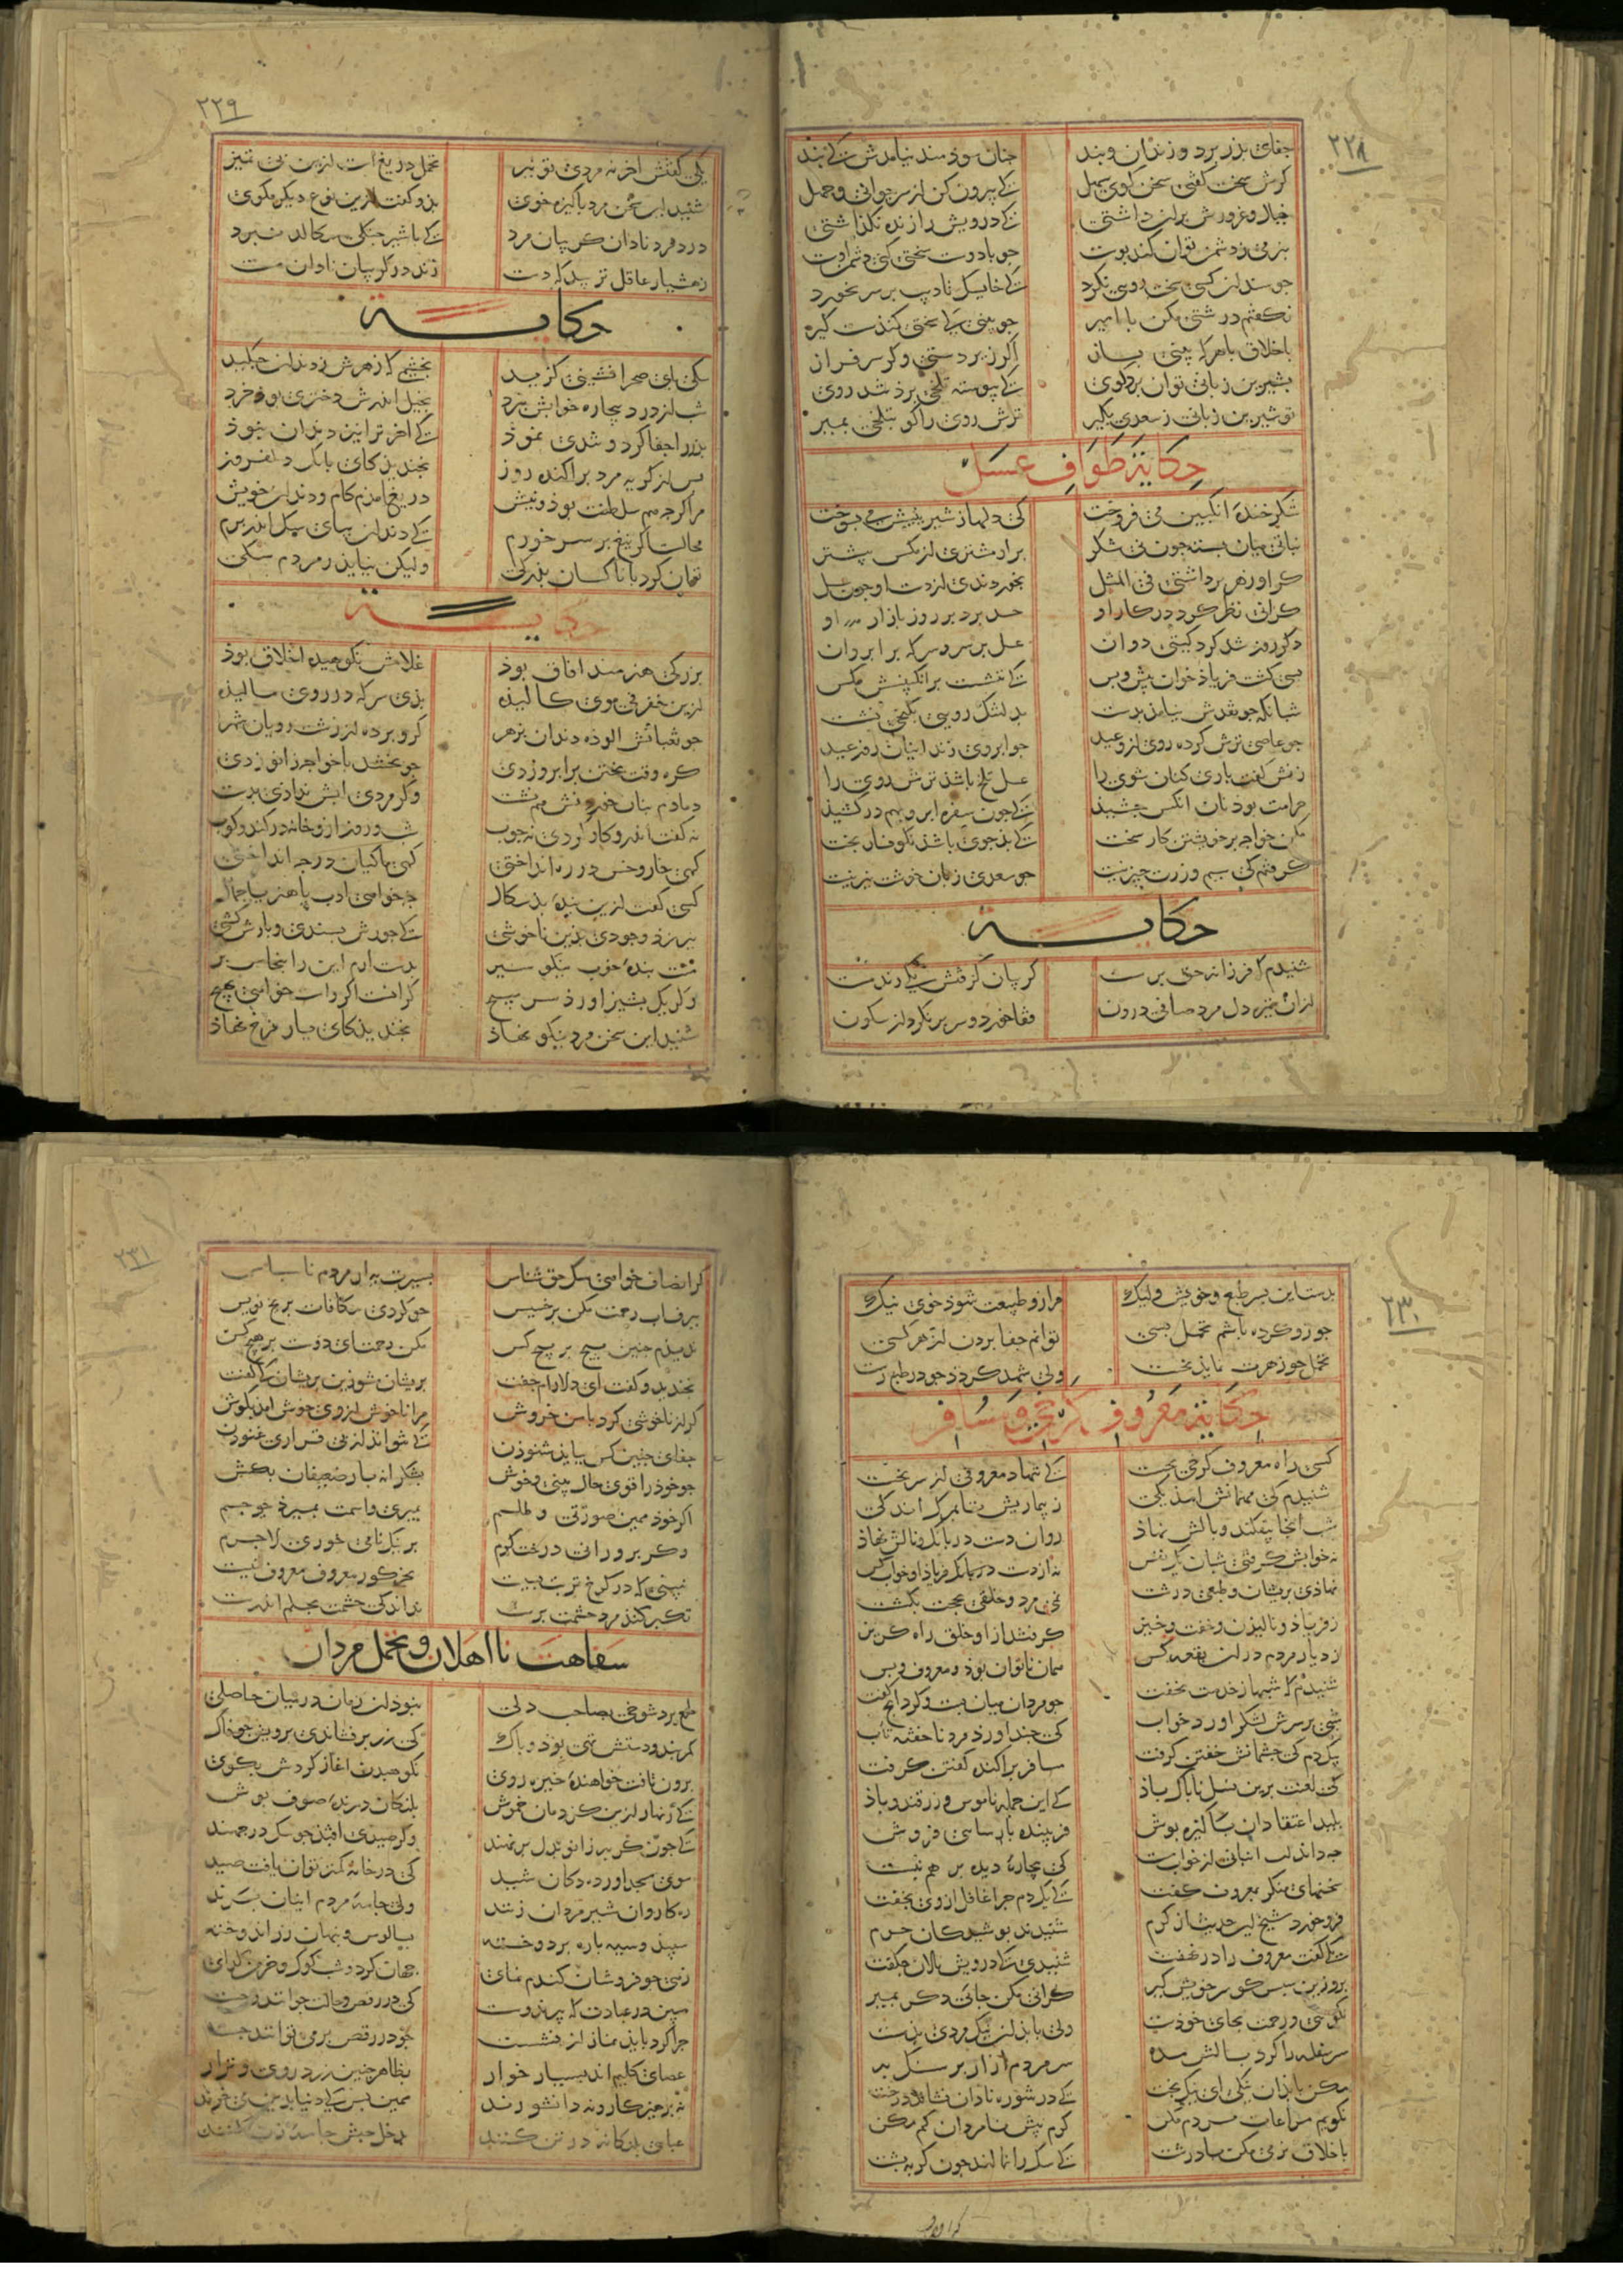 ۲۲۸
جفای بذر برد و زندان و بند جنان سوذمند نیامدش کی بند
کرش سخت کفتی سخن کوی سهل کی بیرون کن از سر جوانی و جهل
خیال و غرورش بران داشتی کی درویش را زنده نکذاشتی
بنرمی ز دشمن توان کند بوست جو با دوست سختی کنی دشمن اوست
جو سندان کسی سخت رویی نکرد کی خایسک تادیب بر سر نخورد
نکفتم درشتی مکن با امیر جو بینی کی سختی کند سست کیر
باخلاق با هرکه بینی بساز اکر زیر دستی و کر سرفراز
بشیرین زبانی توان برد کوی کی بیوسته تلخی برذ تند روی
تو شیرین زبانی ز سعدی بکیر ترش روی را کو بتلخی بمیر
حکایة طواف عسل
شکر خنده انکبین می فروخت کی دلها ز شیرینیش می بسوخت
نباتی میان بسته جون نی شکر برو مشتری از مکس بیشتر
کر او زهر برداشتی فی المثل بخوردندی از دست او جون عسل
کرانی نظر کرد در کار او حسد برد بر روز بازار او
دکر روز شد کرد کیتی دوان عسل بر سر و سرکه بر ابروان
بسی کشت فریاذ خوان بیش و بس کی ننشست بر انکبینش مکس
شبانکه جو نقدش نیامذ بدست بدلتنک رویی بکنجی نشست
جو عاصی ترش کرده روی از وعید جو ابروی زندانیان روز عید
زنش کفت بازی کنان شوی را عسل تلخ باشذ ترش روی را
حرامت بوذ نان انکس جشیذ کی جون سفره ابرو بهم درکشیذ
مکن خواجه بر خویشتن کار سخت کی بذ جوی باشذ نکونسار بخت
کرفتم کی سیم و زرت جیز نیست جو سعدی زبان خوشت نیز نیست
حکایة
شنیدم که فرزانه حق برست کریبان کرفتش یکی رند مست
ازان تیره دل مرد صافی درون قفا خورد و سر بر نکرد از سکون
۲۲۹
یکی کفتش اخر نه مردی تو نیز تحمل دریغ است ازین بی تمیز
شنید این سخن مرد باکیزه خوی بذو کفت ازین نوع دیکر مکوی
درد مرد نادان کریبان مرد کی با شیر جنکی سکالد نبرد
ز هشیار عاقل نزیبد که دست زند در کریبان نادان مست
حکایة
سکی بای صحرا نشینی کزید بخشمی که زهرش ز دندان جکید
شب از درد بیچاره خوابش نبرد بخیل اندرش دختری بوذ خرد
بذر را جفا کرد و تندی نموذ کی اخر ترا نیز دندان نبوذ
بس از کریه مرد براکنده روز بخندید کای بابک دلفروز
مرا کر چه هم سلطنت بوذ و نیش دریغ امذم کام و دندان خویش
محالست اکر تیغ بر سر خورم کی دندان ببای سک اندر برم
توان کرد با ناکسان بذرکی ولیکن نیاید ز مردم سکی
حکایة
بزرکی هنرمند افاق بوذ غلامش نکوهیده اخلاق بوذ
ازین خفرقی موی کالیذه بذی سرکه در روی مالیذه
جو ثعبانش الوذه دندان بزهر کرو برده از زشت رویان شهر
کره وقت بختن برابرو زدی جو بختند با خواجه زانو زدی
دمادم بنان خوردنش هم نشست و کر مردی ابش ندادی بدست
نه کفت اندرو کار کردی نه جوب شب و روز ازو خانه در کند و کوب
کهی خار و خس در ره انداختی کهی ماکیان در جه انداختی
کسی کفت ازین بنده بذ سکال جه خواهی ادب یا هنر یا جمال
نیرزد وجودی بدین ناخوشی کی جورش بسندی و بارش کشی
منت بنده خوب نیکو سیر بدست ارم این را بنخاس بر
و کر یک بشیز اورذ سر مبیچ کرانست اکر راست خواهی بهیچ
شنید این سخن مرد نیکو نهاذ بخندید کای یار فرخ نهاذ
۲۳۰
بدست این بسر طبع و خویش ولیک مرا زو طبیعت شوذ خوی نیک
جو زو کرده باشم تحمل بسی توانم جفا بردن از هر کسی
تحمل جو زهرت نمایذ نخست ولی شهد کردذ جو در طبع رست
حکایة معروف کرخی و مسافر
کسی راه معروف کرخی بجست کی ننهاد معروفی از سر نخست
شنیدم کی مهمانش امذ یکی ز بیماریش تا بمرک اندکی
شب انجا بیفکند و بالش نهاذ روان دست در بانک و نالش نهاذ
نه خوابش کرفتی شبان یک نفس نه از دست فریاذ او خواب کس
نهاذی بریشان و طبعی درشت نمی مرد و خلقی بحجت بکشت
ز فریاذ و نالیذن و خفت و خیز کرفتند ازو خلق راه کریز
ز دیار مردم دران بقعه کس همان ناتوان بوذ و معروف و بس
شنیدم که شبها ز خدمت نخفت جو مردان میان بست و کرد انج کفت
شبی بر سرش لشکر اورد خواب کی جند اورذ مرد ناخفته تاب
بیک دم کی جشمانش خفتن کرفت مسافر براکنده کفتن کرفت
کی لعنت برین نسل ناباک باذ کی این جمله ناموس و زرقند و باذ
بلید اعتقادان باکیزه بوش فریبنده بارسایی فروش
جه داند لت انبانی از خواب مست کی بیچاره دیده بر هم نبست
سخنهای منکر بمعروف کفت کی یک دم جرا غافل ازوی بخفت
فرو خورد شیخ این حدیث از کرم شنیدند بوشیدکان حرم
یکی کفت معروف را در نهفت شنیدی کی درویش نالان جکفت
برو زین سبس کو سر خویش کیر کرانی مکن جای دکر بمیر
نکویی و رحمت بجای خوذست ولی با بذان نیک مردی بذست
سر سفله را کرد بالش منه سر مردم ازار بر سنک به
مکن با بذان نیکی ای نیکبخت کی در شوره نادان نشاند درخت
نکویم مراعات مردم مکن کرم بیش نامردان کم مکن
باخلاق نرمی مکن با درشت کی سک را نمالند جون کربه بشت
۲۳۱
کر انصاف خواهی سک حق شناس بسیرت به از مردم ناسباس
ببرفاب رحمت مکن بر خسیس جو کردی مکافات بر یخ نویس
ندیدم جنین بیج بر بیج کس مکن رحمت ای دوست بر هیچ کس
بخندید و کفت ای دلارام جفت بریشان مشو زین بریشان کی کفت
کر از ناخوشی کرد با من خروش مرا ناخوش از وی خوش امذ بکوش
جفای جنین کس ببایذ شنوذن کی نتواند از بی قراری غنوذن
جو خوذ را قوی حال بینی و خوش بشکرانه بار ضعیفان بکش
اکر خوذ همین صورتی و طلسم بمیری و اسمت بمیرذ جو جسم
و کر برورانی درخت کرم بر نیک نامی خوری لاجرم
نبینی که در کرخ تربت بسیست بجز کور معروف معروف نیست
تکبر کند مرد حشمت برست نداند کی حشمت بحلم اندرست
سفاهت نا اهلان و تحمل مردان
طمع برد شوخی بصاحب دلی نبوذ ان زمان در میان حاصلی
کمربند و دستش تهی بوذ و باک کی زر بر فشاندی برویش جو خاک
برون تافت خواهنده خیره روی نکوهیدن اغاز کردش بکوی
کی زنهار ازین کزدمان خموش بلنکان درنده صوف بوش
کی جون کربه زانو بدل بر نهند و کر صیدی افتذ جو سک در جهند
سوی مسجد اورده دکان شید کی در خانه کمتر توان یافت صید
ره کاروان شیر مردان زنند ولی جامه مردم اینان کنند
سبید و سیه باره بر دوخته بسالوس و بنهان زر اندوخته
زهی جو فروشان کندم نمای جهان کرد و شبکوک و خرمن کدای
مبین در عبادت که بیرند و سست کی در رقص و حالت جوانند و جست
جرا کرد باید نماز از نشست جو در رقص بر می توانند جست
عصای کلیم اند بسیار خوار بظاهر جنین زرد روی و نزار
نه برهیزکار و نه دانشورند همین بس کی دنیا بدین می خرند
عبای بلیکانه در تن کنند بدخل حبش جامه زن کنند